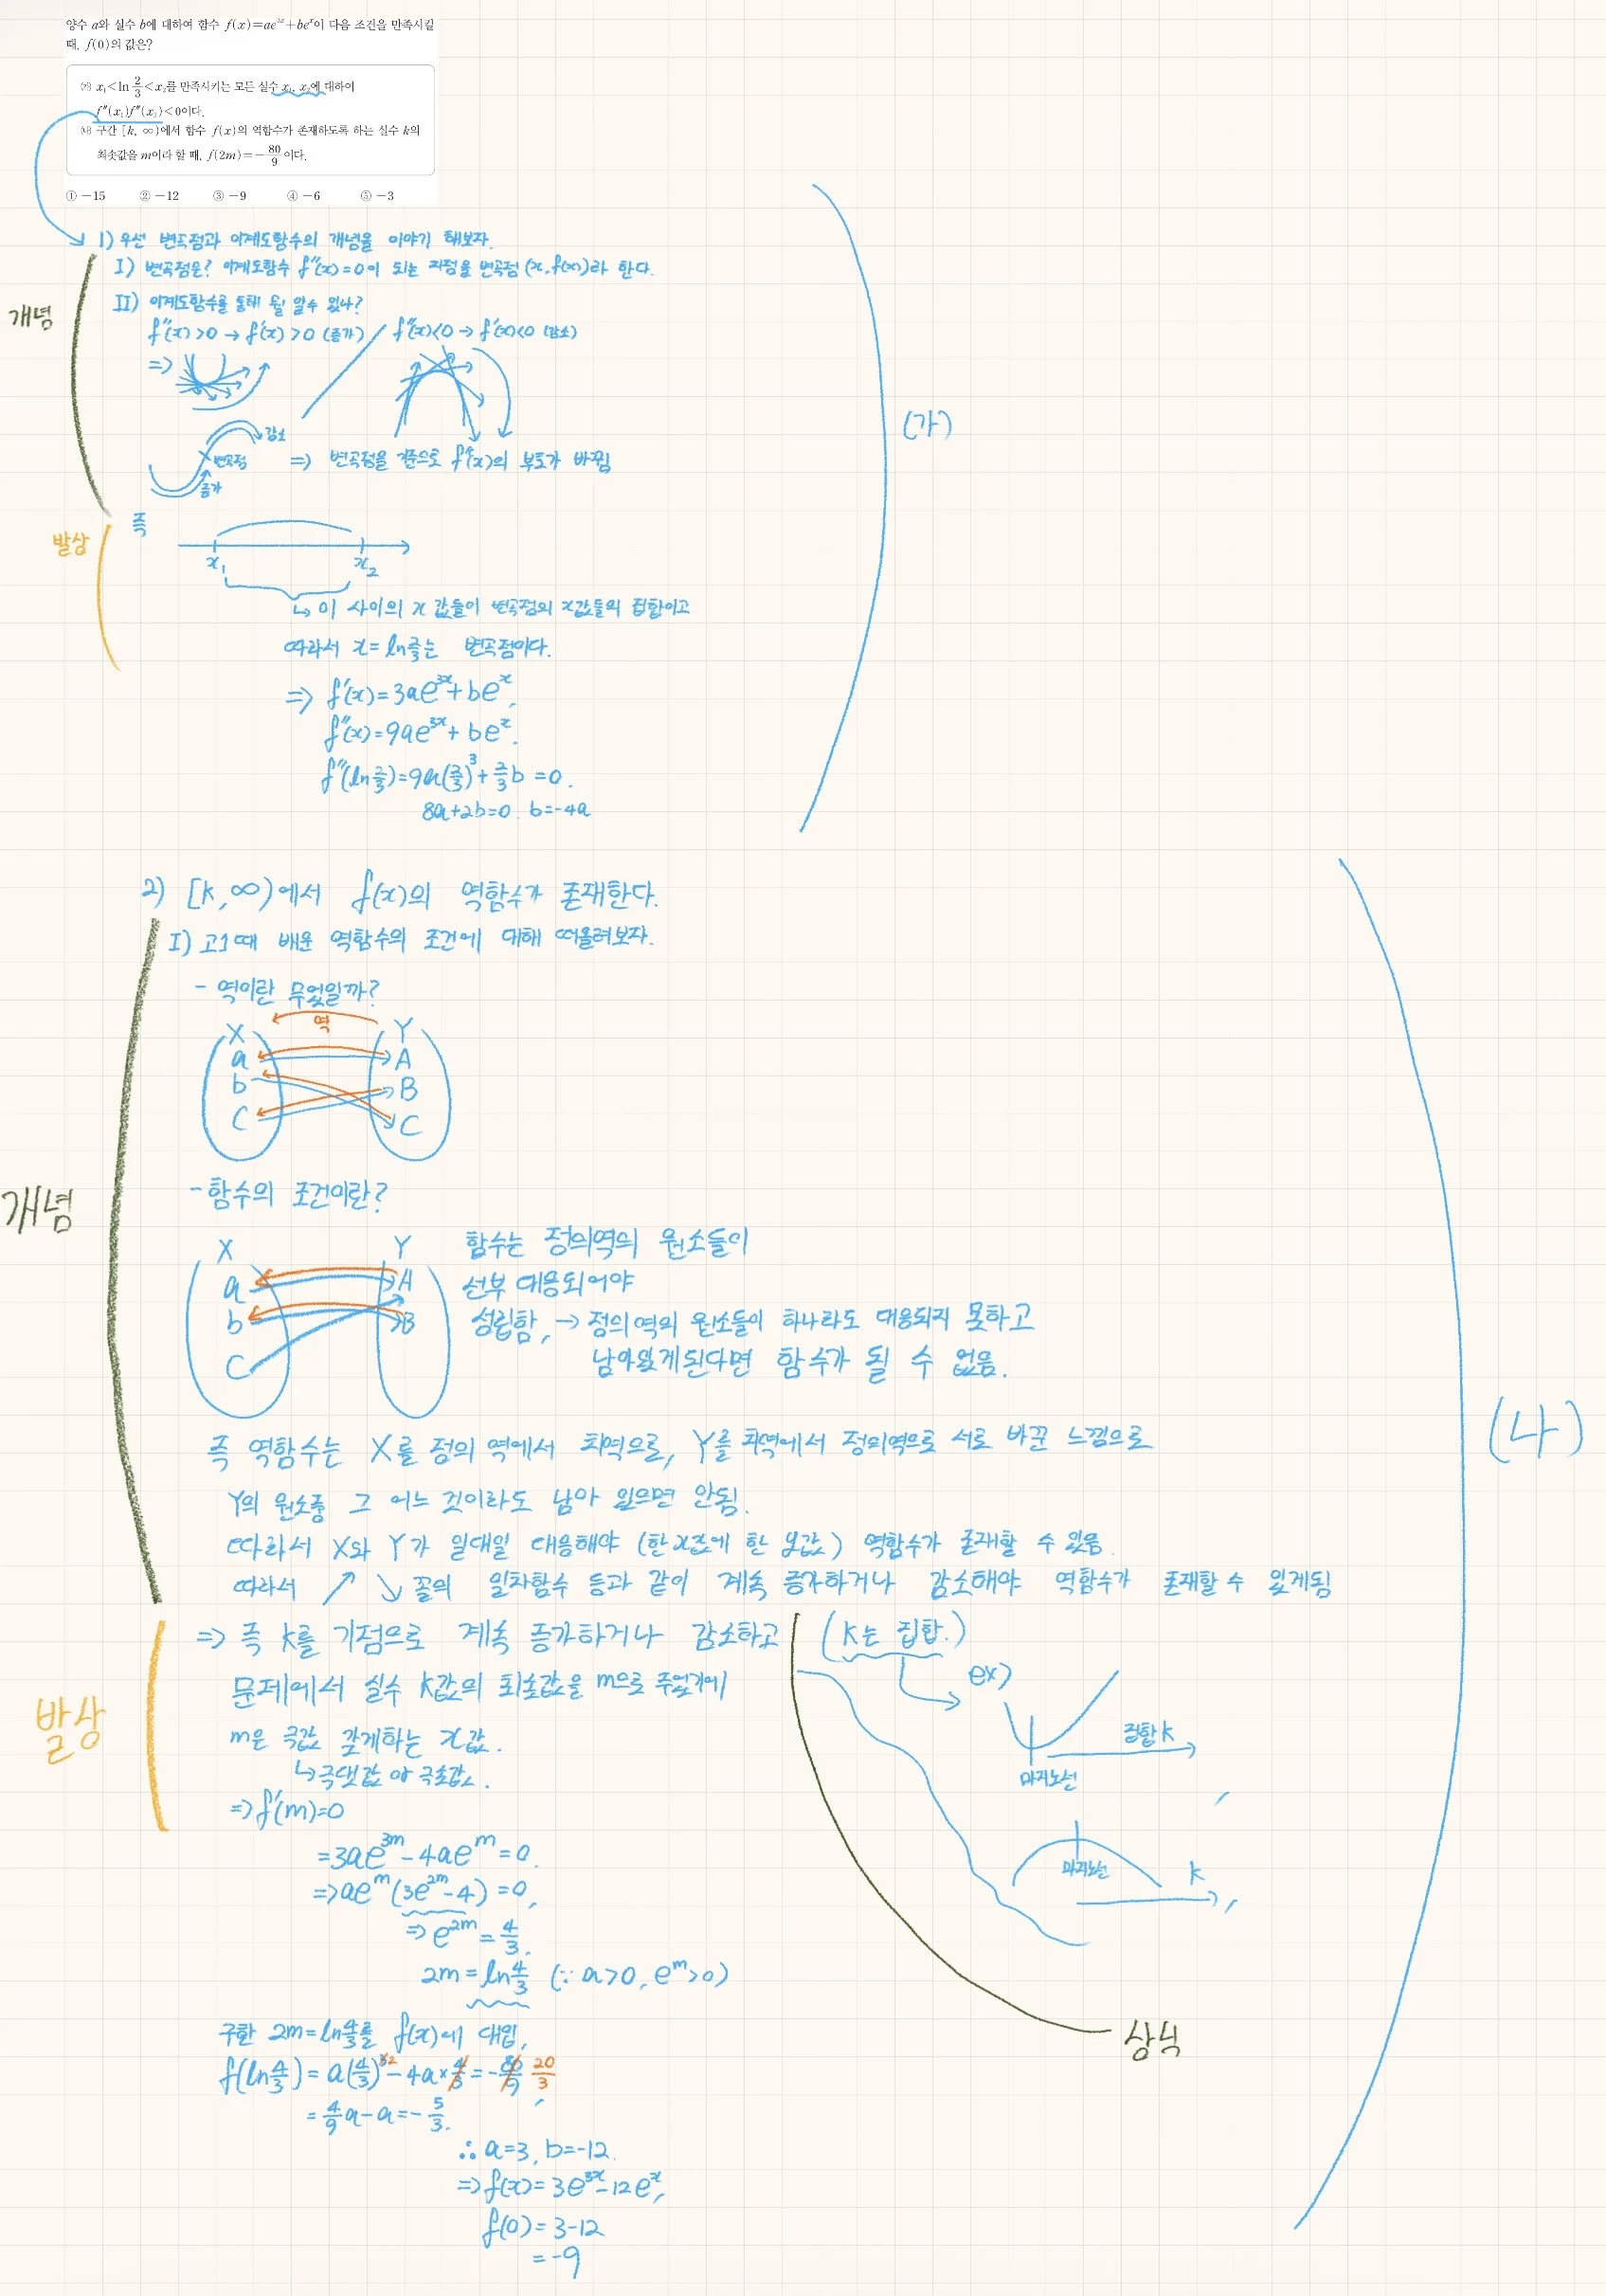 양수 a와 실수 b에 대하여 함수 f(x)=ae³ˣ+beˣ이 다음 조건을 만족시킬
때, f(0)의 값은?
㈎ x₁<ln 2/3<x₂를 만족시키는 모든 실수 x₁, x₂에 대하여
f″(x₁)f″(x₂)<0이다.
㈏ 구간 [k, ∞)에서 함수 f(x)의 역함수가 존재하도록 하는 실수 k의
최솟값을 m이라 할 때, f(2m)=-80/9이다.
① -15 ② -12 ③ -9 ④ -6 ⑤ -3
1) 우선 변곡점과 이계도함수의 개념을 이야기 해보자.
I) 변곡점은? 이계도함수 f″(x)=0이 되는 지점을 변곡점 (x, f(x))라 한다.
개념
II) 이계도함수를 통해 뭘 알수 있나?
f″(x)>0 → f′(x)>0 (증가) / f″(x)<0 → f′(x)<0 (감소)
⇒
감소
변곡점
증가
⇒ 변곡점을 기준으로 f″(x)의 부호가 바뀜
(가)
발상
즉
x₁ x₂
↳ 이 사이의 x 값들이 변곡점의 x값들의 집합이고
따라서 x=ln 2/3는 변곡점이다.
⇒ f′(x)=3ae³ˣ+beˣ,
f″(x)=9ae³ˣ+beˣ.
f″(ln 2/3)=9a(2/3)³+2/3b=0.
8a+2b=0. b=-4a
2) [k, ∞)에서 f(x)의 역함수가 존재한다.
I) 고1때 배운 역함수의 조건에 대해 떠올려보자.
- 역이란 무엇일까?
역
X Y
a A
b B
C C
개념
- 함수의 조건이란?
X Y
a A
b B
C
함수는 정의역의 원소들이
선부 대응되어야
성립함, → 정의역의 원소들이 하나라도 대응되지 못하고
남아있게된다면 함수가 될 수 없음.
(나)
즉 역함수는 X를 정의역에서 치역으로, Y를 치역에서 정의역으로 서로 바꾼 느낌으로
Y의 원소중 그 어느 것이라도 남아 있으면 안됨.
따라서 X와 Y가 일대일 대응해야 (한 x값에 한 y값) 역함수가 존재할 수 있음.
따라서 ↗ ↘ 꼴의 일차함수 등과 같이 계속 증가하거나 감소해야 역함수가 존재할 수 있게됨
발상
⇒ 즉 k를 기점으로 계속 증가하거나 감소하고 (k는 집합.)
문제에서 실수 k값의 최솟값을 m으로 주었기에
m은 극값 갖게하는 x값.
↳ 극댓값 or 극솟값.
ex)
집합 k
마지노선
마지노선
k
상식
⇒ f′(m)=0
=3ae³ᵐ-4aeᵐ=0.
⇒ aeᵐ(3e²ᵐ-4)=0,
⇒ e²ᵐ=4/3.
2m=ln 4/3 (∵ a>0, eᵐ>0)
구한 2m=ln 4/3를 f(x)에 대입,
f(ln 4/3)=a(4/3)³ ²-4a×4/3=-80/9 20/3,
=4/9a-a=-5/3.
∴ a=3, b=-12.
⇒ f(x)=3e³ˣ-12eˣ,
f(0)=3-12
=-9